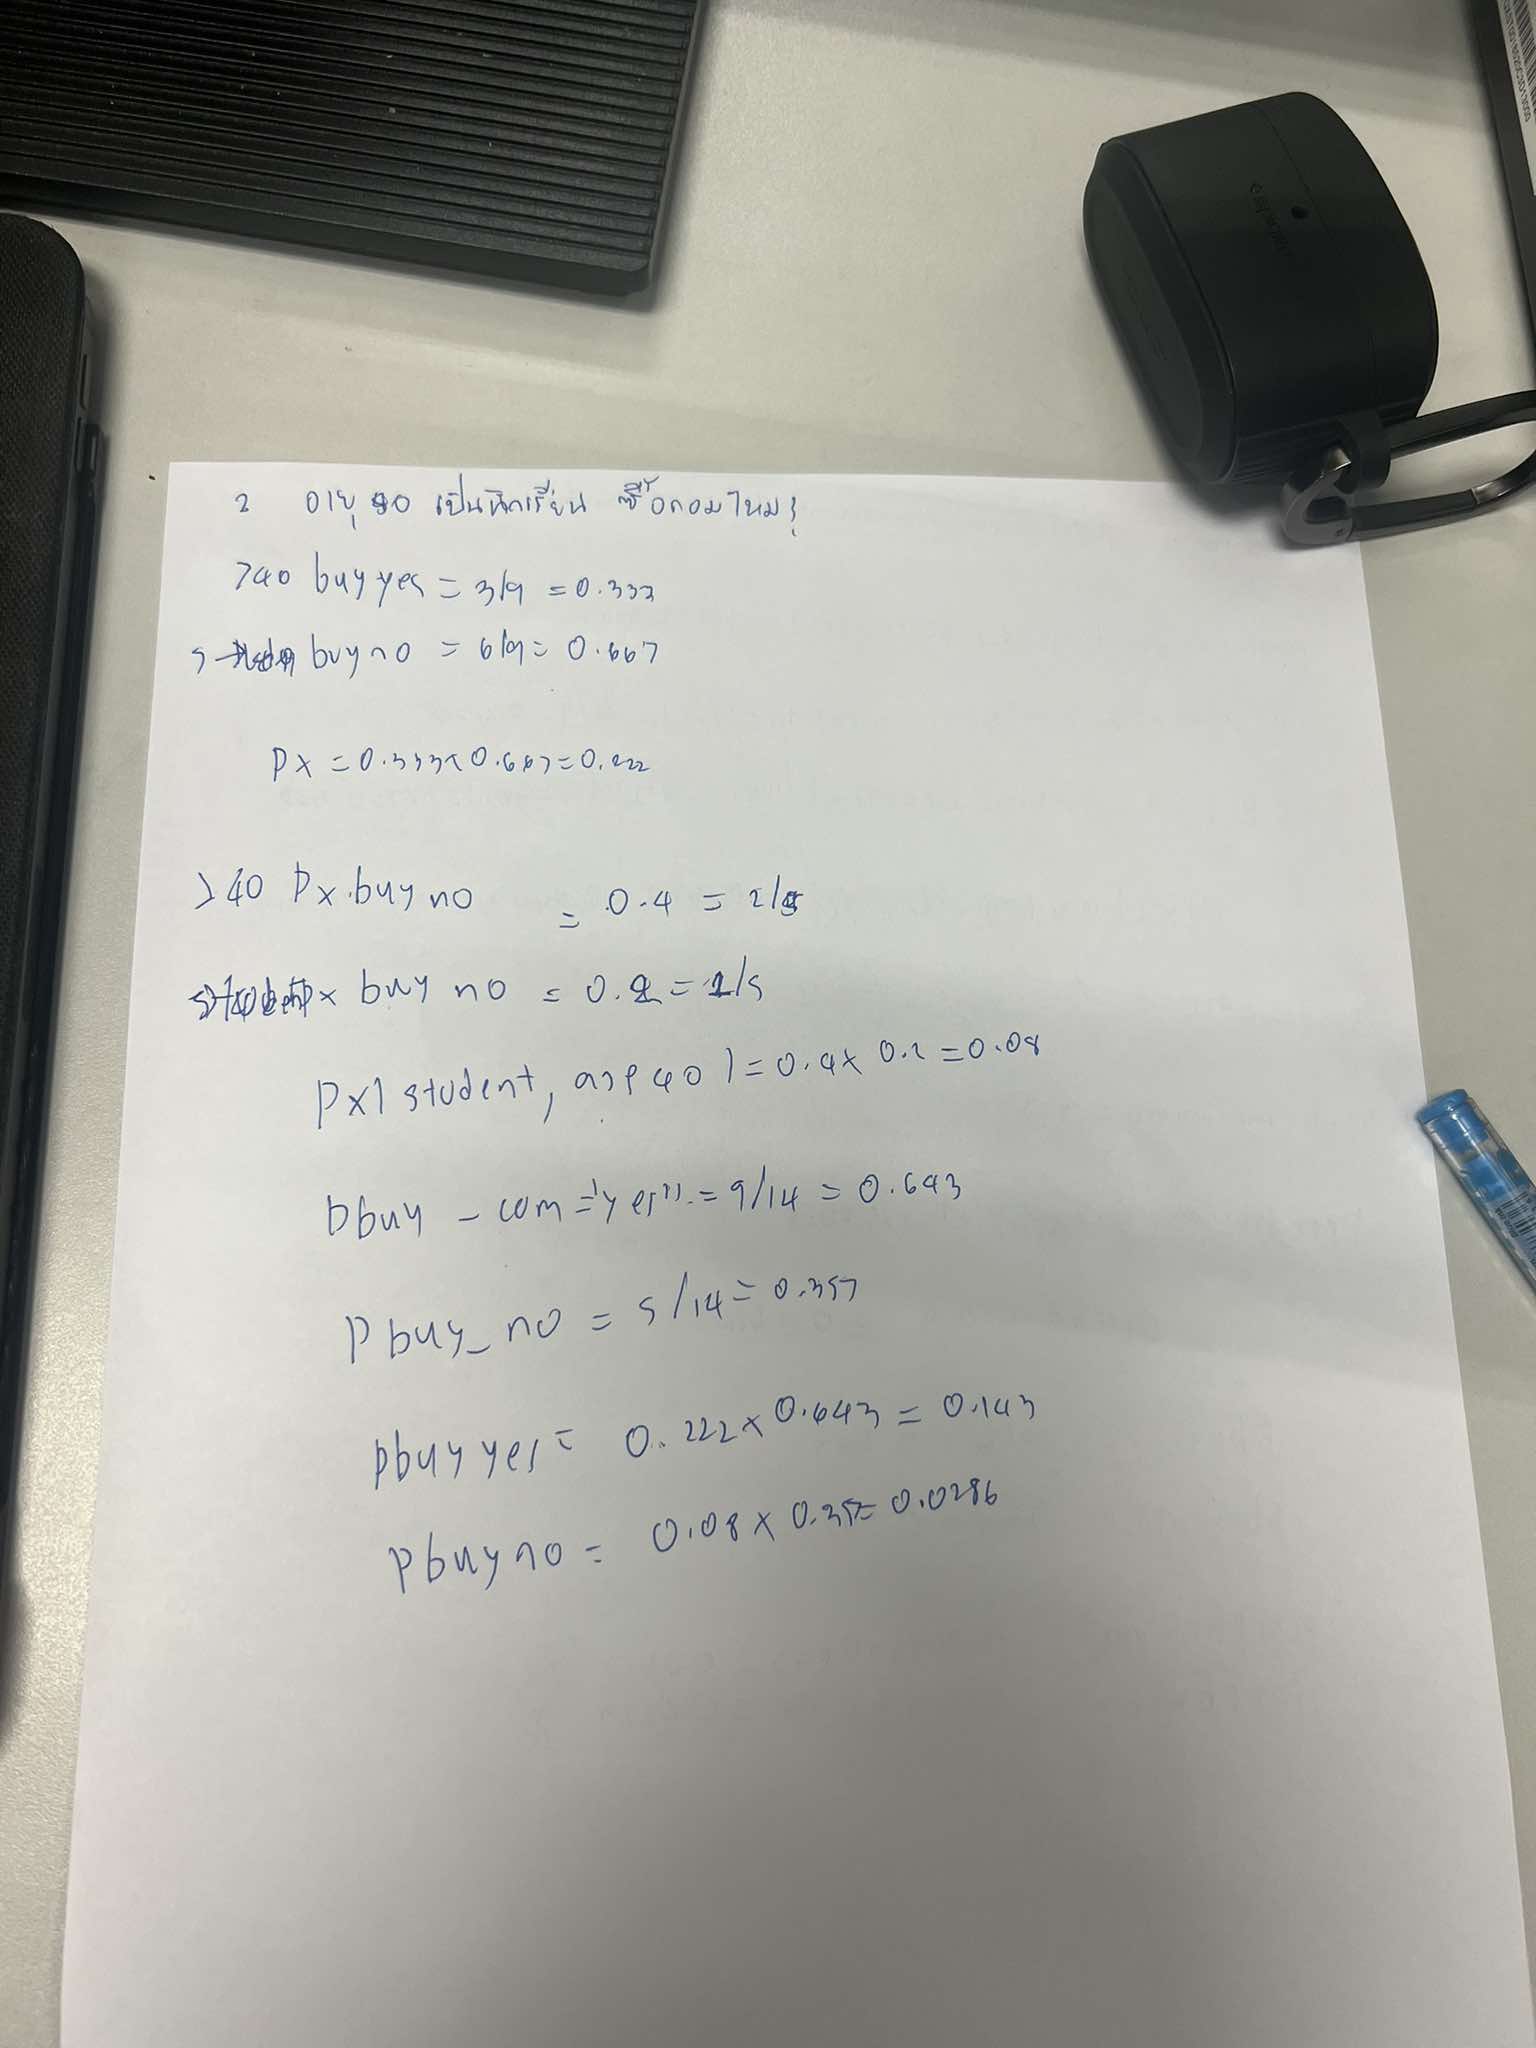 2 อายุ 50 เป็นนักเรียน ซื้อคอมไหม?
>40 buy yes = 3/9 = 0.333
buy no = 6/9 = 0.667
Px = 0.333x0.667=0.222
>40 Px buy no = 0.4 = 2/5
buy no = 0.2 = 1/5
Px1 student, age 40 ) = 0.4x 0.2 = 0.08
Pbuy - com ="yes" = 9/14 = 0.643
P buy_ no = 5/14 = 0.357
pbuy yes = 0.222x 0.643 = 0.143
P buy no = 0.08 x 0.357= 0.0286